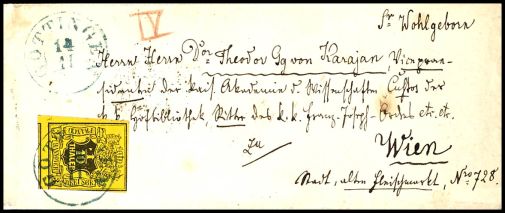 IV
Sr Wohlgeborn
GÖTTINGEN
14
11
Herrn Herrn Dor Theodor Gg von Karajan, Viceprae-
sidenten der kais. Akademie d. Wissenschaften Custos der
k. k. Hofbibliothek, Ritter des k. k. Franz-Joseph-Ordens etc. etc.
zu
Wien
Stadt, alten Fleischmarkt, Nro 728.
10